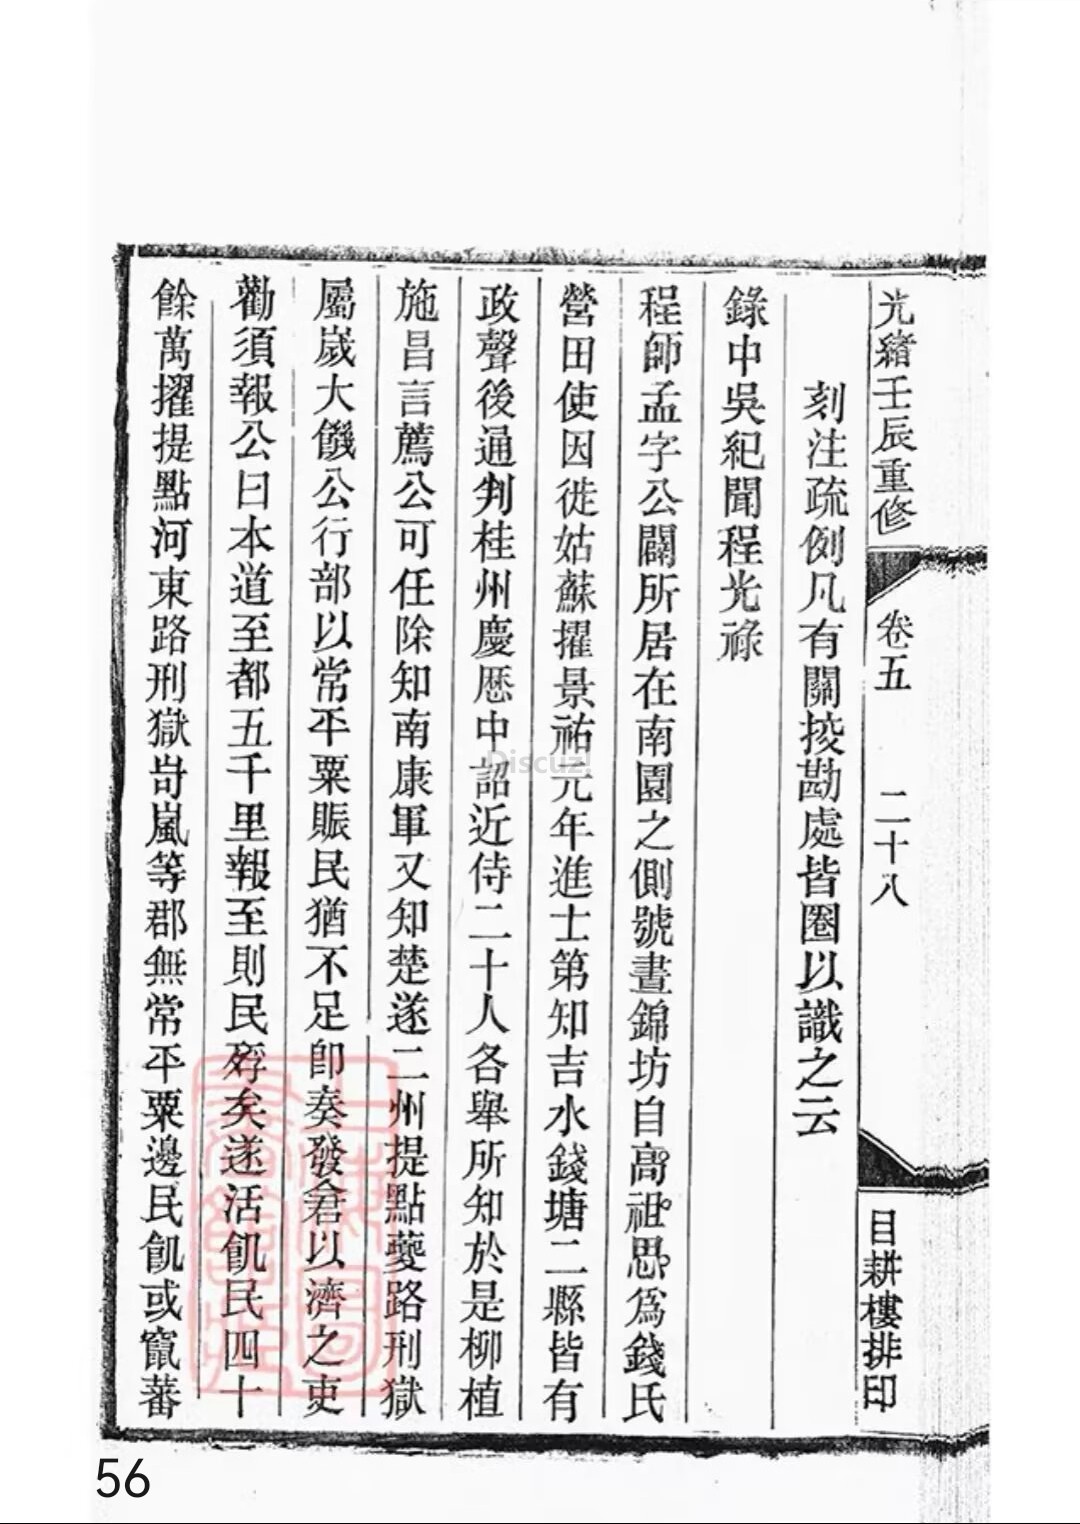 光緒壬辰重修
卷五
二十八
目耕樓排印
刻注疏例凡有關挍勘處皆圈以識之云
錄中吳紀聞程光祿
程師孟字公闢所居在南園之側號晝錦坊自高祖思爲錢氏
營田使因徙姑蘇擢景祐元年進士第知吉水錢塘二縣皆有
政聲後通判桂州慶歷中詔近侍二十人各舉所知於是柳植
施昌言薦公可任除知南康軍又知楚遂二州提點夔路刑獄
屬歲大饑公行部以常平粟賑民猶不足卽奏發倉以濟之吏
勸須報公曰本道至都五千里報至則民殍矣遂活飢民四十
餘萬擢提點河東路刑獄岢嵐等郡無常平粟邊民飢或竄蕃
Discuz!
56